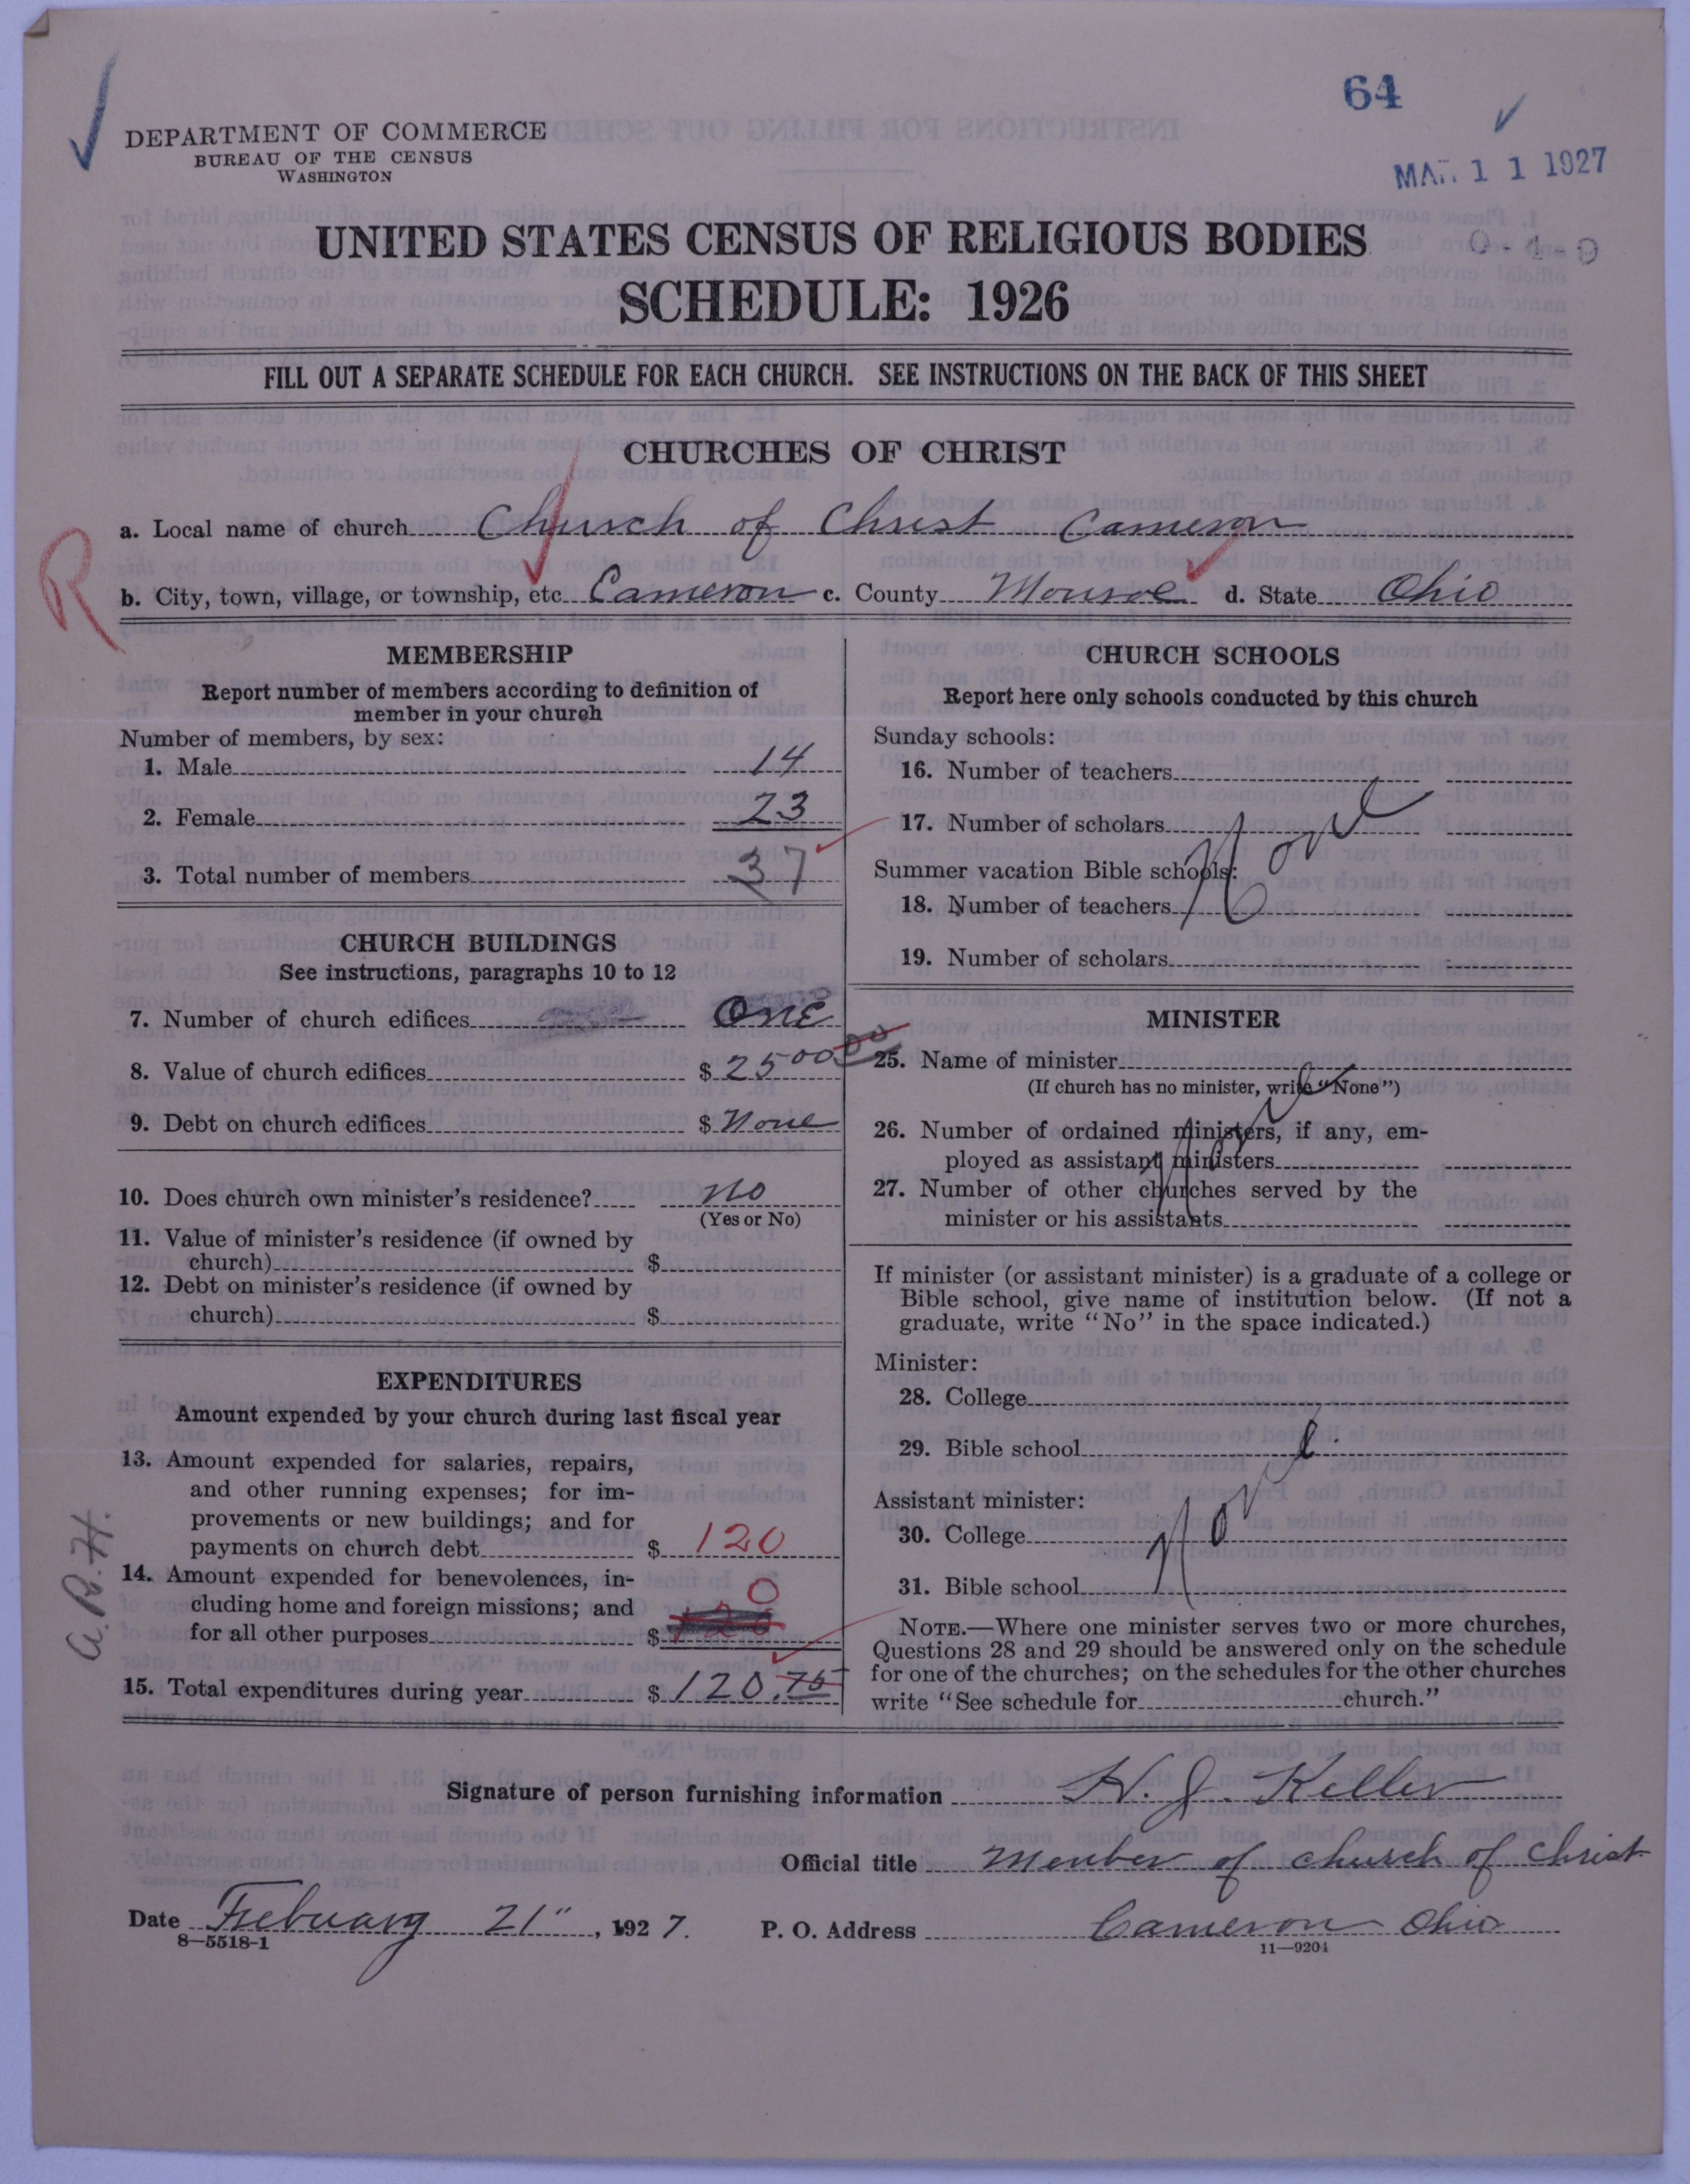 64
DEPARTMENT OF COMMERCE
BUREAU OF THE CENSUS
WASHINGTON
MAR 11 1927
UNITED STATES CENSUS OF RELIGIOUS BODIES
SCHEDULE: 1926
0-4-9
FILL OUT A SEPARATE SCHEDULE FOR EACH CHURCH. SEE INSTRUCTIONS ON THE BACK OF THIS SHEET
CHURCHES OF CHRIST
a. Local name of church Church of Christ Cameron
R
b. City, town, village, or township, etc. Cameron c. County Monroe d. State Ohio
MEMBERSHIP
Report number of members according to definition of
member in your church
Number of members, by sex:
1. Male 14
2. Female 23
3. Total number of members 37
CHURCH BUILDINGS
See instructions, paragraphs 10 to 12
7. Number of church edifices One
8. Value of church edifices $ 2500 00
9. Debt on church edifices $ None
10. Does church own minister's residence? No
(Yes or No)
11. Value of minister's residence (if owned by
church) $
12. Debt on minister's residence (if owned by
church) $
EXPENDITURES
Amount expended by your church during last fiscal year
13. Amount expended for salaries, repairs,
and other running expenses; for im-
provements or new buildings; and for
payments on church debt $ 120
14. Amount expended for benevolences, in-
cluding home and foreign missions; and
for all other purposes $ 0
15. Total expenditures during year $ 120.75
CHURCH SCHOOLS
Report here only schools conducted by this church
Sunday schools:
16. Number of teachers
17. Number of scholars
None
Summer vacation Bible schools:
18. Number of teachers
19. Number of scholars
MINISTER
25. Name of minister
(If church has no minister, write "None")
None
26. Number of ordained ministers, if any, em-
ployed as assistant ministers
27. Number of other churches served by the
minister or his assistants
If minister (or assistant minister) is a graduate of a college or
Bible school, give name of institution below. (If not a
graduate, write "No" in the space indicated.)
Minister:
28. College
29. Bible school
None
Assistant minister:
30. College
31. Bible school
NOTE.—Where one minister serves two or more churches,
Questions 28 and 29 should be answered only on the schedule
for one of the churches; on the schedules for the other churches
write "See schedule for church."
Signature of person furnishing information H. J. Keller
Official title Member of church of Christ
Date Febuary 21", 1927. P. O. Address Cameron Ohio
8—5518-1
11—9204